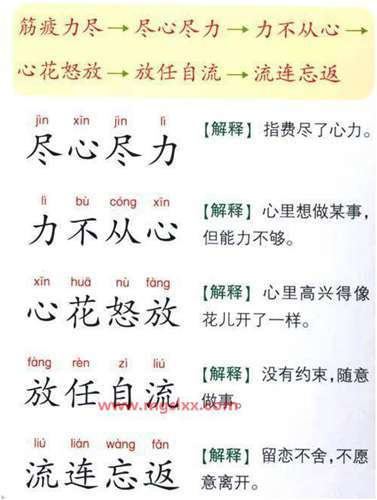 筋疲力尽→尽心尽力→力不从心→
心花怒放→放任自流→流连忘返
jìn xīn jìn lì
尽心尽力 【解释】指费尽了心力。
lì bù cóng xīn
力不从心 【解释】心里想做某事，
但能力不够。
xīn huā nù fàng
心花怒放 【解释】心里高兴得像
花儿开了一样。
fàng rèn zì liú
放任自流 【解释】没有约束，随意
做事。
www.mgslxx.com
liú lián wàng fǎn
流连忘返 【解释】留恋不舍，不愿
意离开。